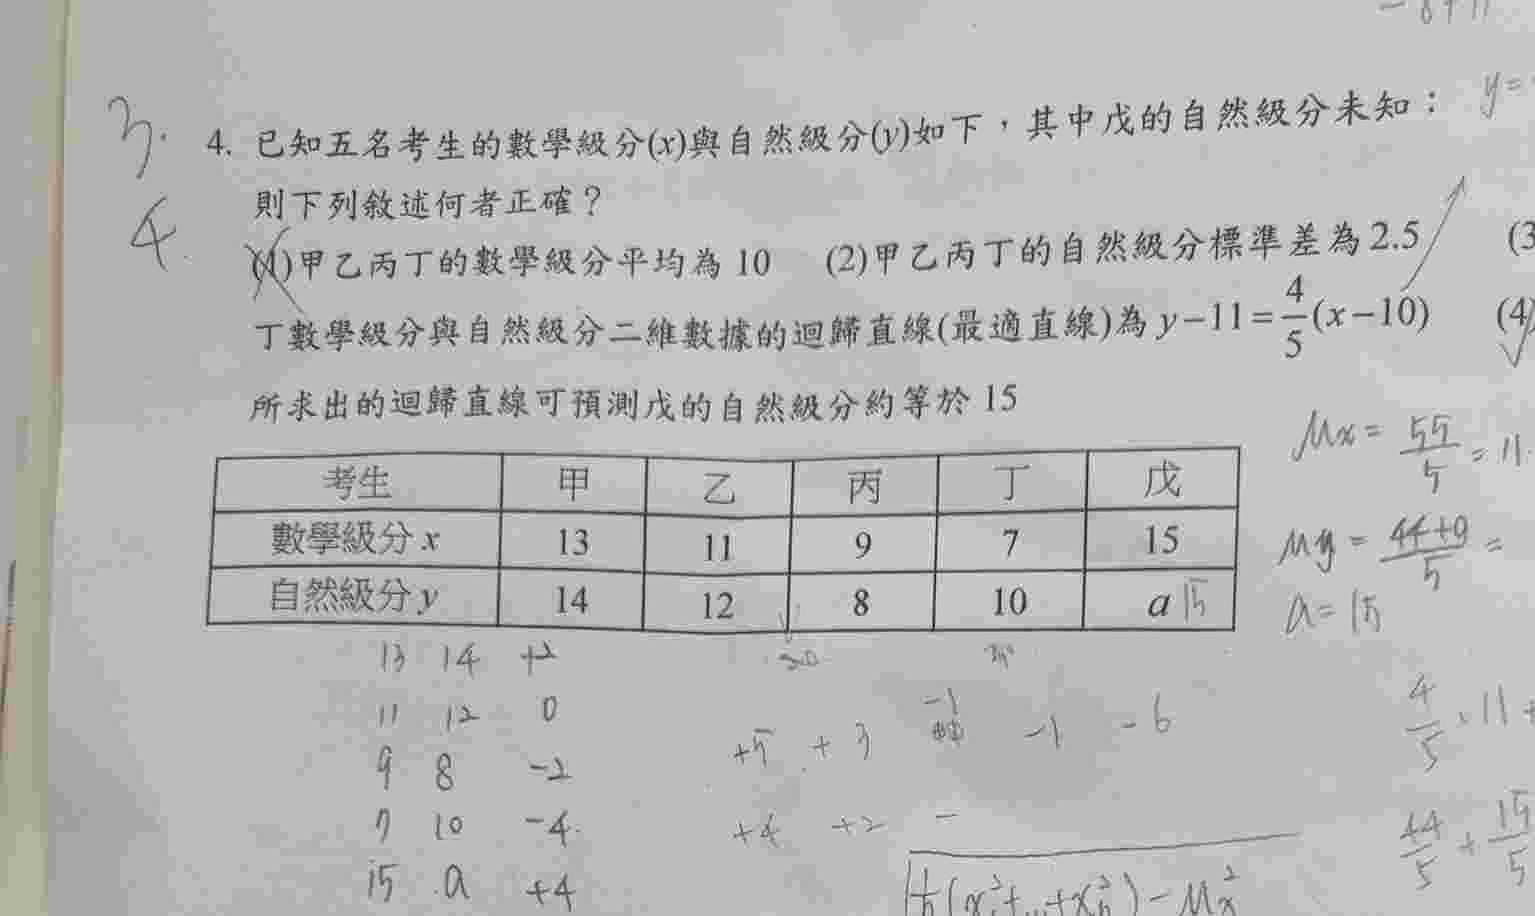 - 8 + 11
y =
3.
4. 已知五名考生的數學級分(x)與自然級分(y)如下，其中戊的自然級分未知：
則下列敘述何者正確？
4.
(1)甲乙丙丁的數學級分平均為 10 (2)甲乙丙丁的自然級分標準差為 2.5 (3
丁數學級分與自然級分二維數據的迴歸直線(最適直線)為 y−11=4/5(x−10) (4
所求出的迴歸直線可預測戊的自然級分約等於 15
μx = 55/5 = 11.
考生 甲 乙 丙 丁 戊
數學級分 x 13 11 9 7 15
μy = 44+a/5 =
自然級分 y 14 12 8 10 a 15
a = 15
13 14 +2
11 12 0
+5 +3 -1 -1 -6
4/5 · 11 +
9 8 -2
7 10 -4.
+4 +2 -
44/5 + 15/5
15 a +4
√1/n(x²+...+xn²) - μx²